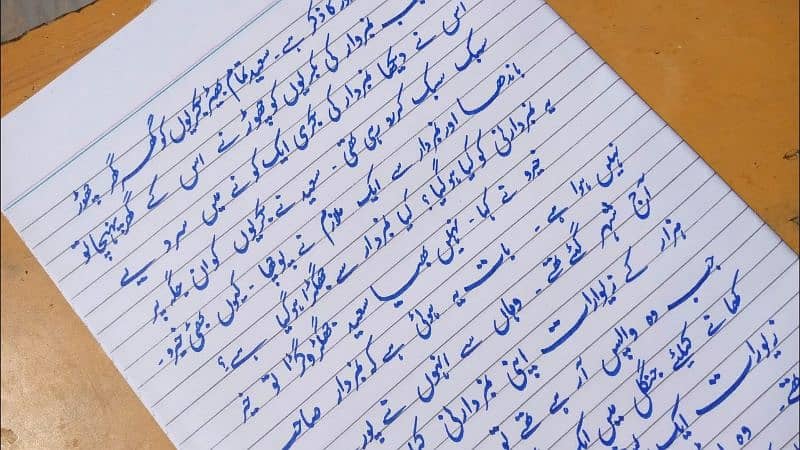 کا ذکر ہے۔ سعید تمام بھیڑ بکریوں کو گھر گھر چھوڑ
جب نمبردار کی بکریوں کو چھوڑنے اس کے گھر پہنچا تو
اس نے دیکھا نمبردار کی بکری ایک کونے میں سر دیے
سبک سبک کر رو رہی تھی۔ سعید نے بکریوں کو ان جگہ پر
باندھا اور نمبردار سے ایک ملازم نے پوچھا۔ کیوں بھئی خیرو۔
یہ نمبردارنی کو کیا ہو گیا؟ کیا نمبردار سے جھگڑا ہو گیا ہے؟
خیرو نے کہا۔ نہیں بھیا سعید جھگڑا وگڑا تو خیر
نہیں ہوا ہے۔ بات یہ ہوئی ہے کہ نمبردار صاحب
آج شہر گئے تھے۔ وہاں سے انہوں نے پور
ہزار کے زیورات اپنی نمبردارنی
جب وہ واپس آ رہے تھے تو
کھانے کیلئے جنگل میں ایک
زیورات ایک
تھے۔ وہ